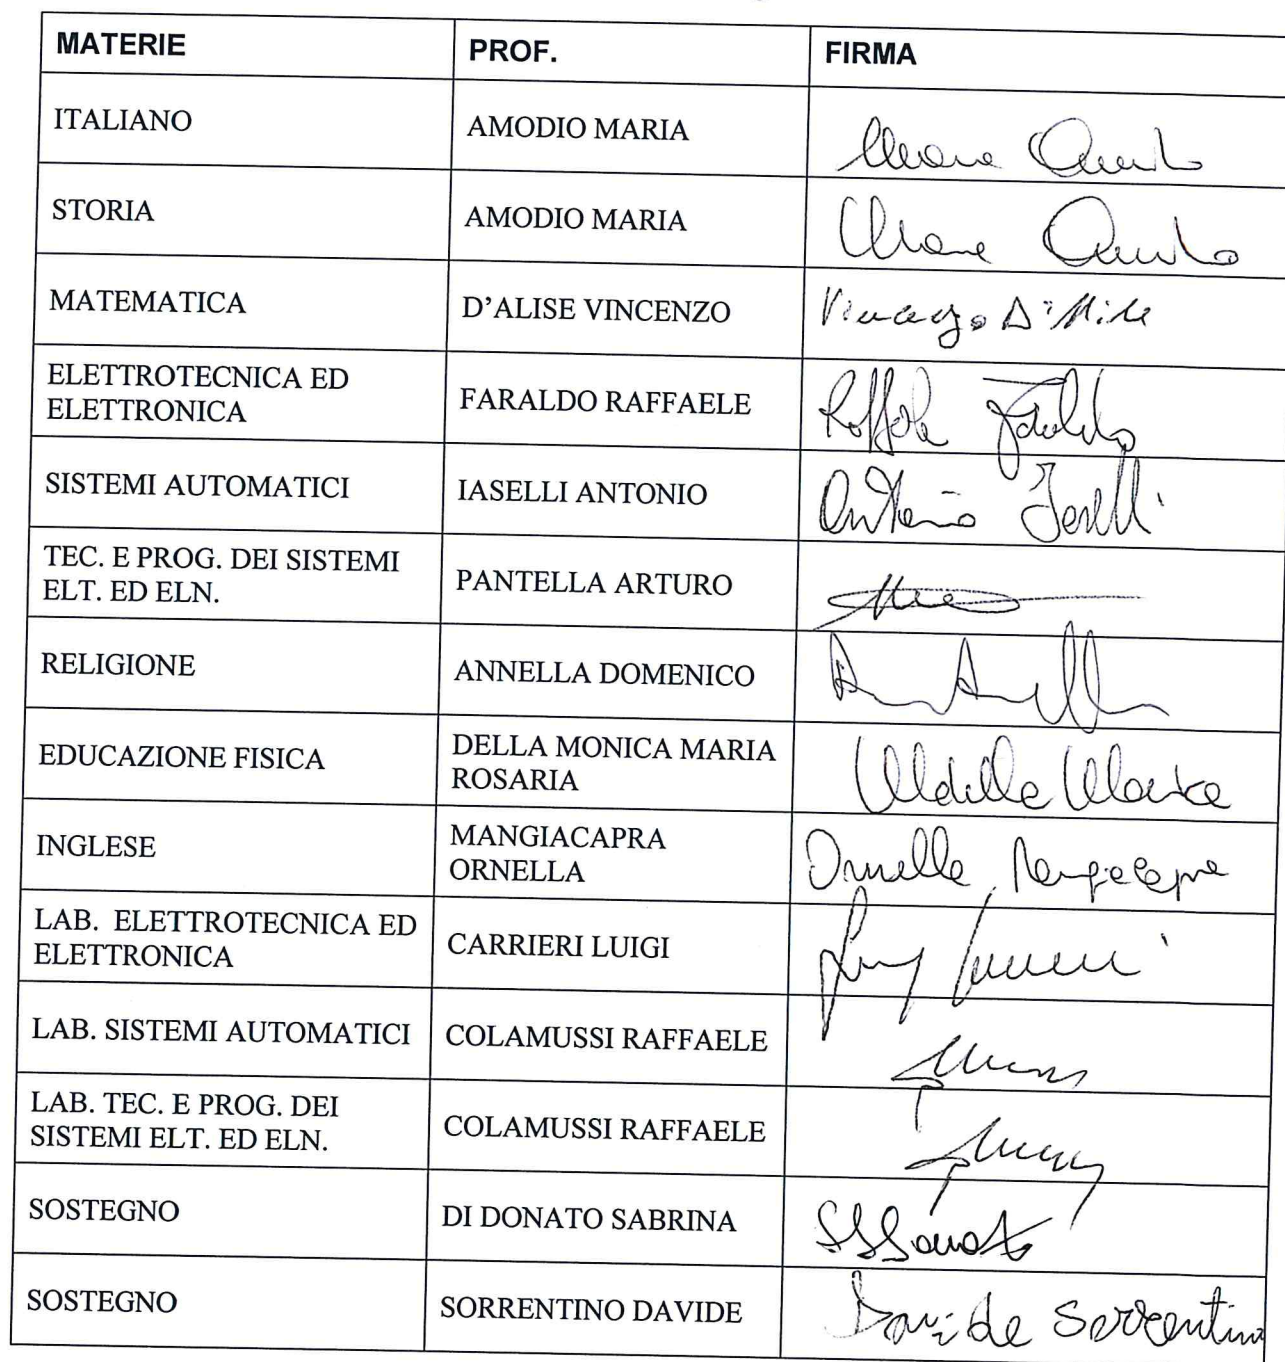 MATERIE PROF. FIRMA
ITALIANO AMODIO MARIA
STORIA AMODIO MARIA
MATEMATICA D'ALISE VINCENZO
ELETTROTECNICA ED
ELETTRONICA FARALDO RAFFAELE
SISTEMI AUTOMATICI IASELLI ANTONIO Antonio Iaselli
TEC. E PROG. DEI SISTEMI
ELT. ED ELN. PANTELLA ARTURO
RELIGIONE ANNELLA DOMENICO
EDUCAZIONE FISICA DELLA MONICA MARIA
ROSARIA
INGLESE MANGIACAPRA
ORNELLA Ornella Mangiacapra
LAB. ELETTROTECNICA ED
ELETTRONICA CARRIERI LUIGI
LAB. SISTEMI AUTOMATICI COLAMUSSI RAFFAELE
LAB. TEC. E PROG. DEI
SISTEMI ELT. ED ELN. COLAMUSSI RAFFAELE
SOSTEGNO DI DONATO SABRINA
SOSTEGNO SORRENTINO DAVIDE Davide Sorrentino